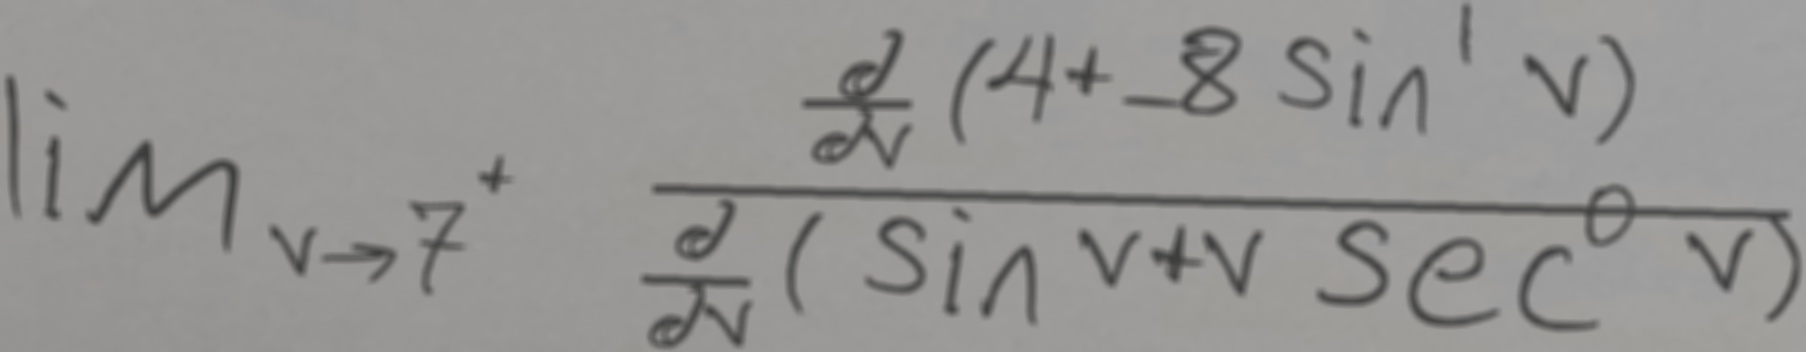 $\lim_{v \to 7^+} \frac{\frac{d}{dv}(4 + -8 \sin^1 v)}{\frac{d}{dv}(\sin v + v \sec^0 v)}$